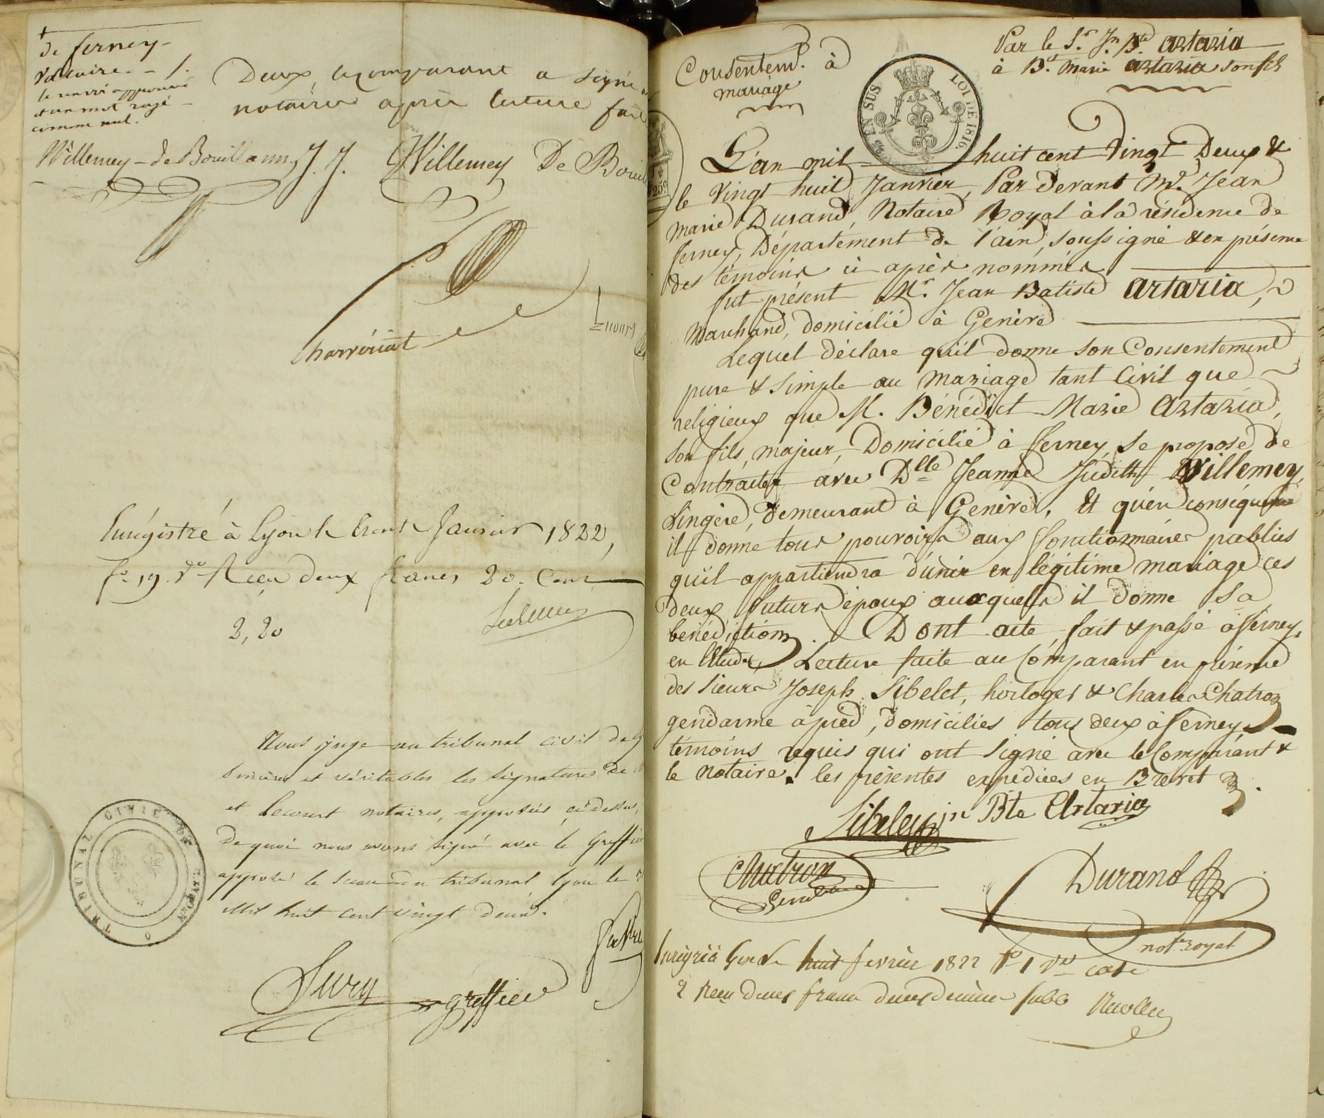 +
de ferney-
voltaire. - /.
le renvoi approuvé
et un mot rayé
comme nul.
Deux comparant a signé
notaires après lecture fait
Willemey - de Bouillanne, J. J. Willemey De Boui
Charréziat
Enrégistré à Lyon le trente Janvier 1822,
fo 19. Vo Reçu deux francs 20. Cent
2,20
Nous juge au tribunal civil de
sincères et véritables les signatures de
et Lecourt notaires, apposées ci-dessus,
De quoi nous avons signé avec le Greffier
apposé le Sceau du tribunal Lyon le
Mil huit cent vingt deux.
TRIBUNAL CIVIL DE LYON
greffier
Consentemt. à
mariage
Par le Sr. Jn. Bte artaria
à Bt. Marie artaria son fils
EN SUS LOI DE 1816.
L'an mil huit cent vingt Deux &
le vingt huit Janvier, Par devant Me. Jean
Marie Durand Notaire Royal à la résidence de
ferney, Département de l'ain, soussigné & en présence
des témoins ci après nommés
fut présent Mr. Jean Batiste artaria,
Marchand, domicilié à Genève
Lequel déclare qu'il donne son Consentement
pure & simple au mariage tant Civil que
religieux que M. Bénédict Marie Artaria,
son fils, majeur, Domicilié à ferney, se propose de
Contracter avec Dlle Jeanne Judith Willemey,
Lingère, demeurant à Genève, Et qu'en conséquence
il donne tous pouvoirs aux fonctionnaires publics
qu'il appartiendra d'unir en légitime mariage ces
deux futurs époux auxquels il donne sa
bénédiction. Dont acte, fait & passé à ferney,
en l'étude, Lecture faite au Comparant en présence
des sieurs Joseph Sibelet, horloger & Charles Chatron
gendarme à pied, domiciliés tous deux à ferney
témoins requis qui ont signé avec le Comparant &
le notaire. les présentes expédiées en Brevet
Jn Bte Artaria
Chatron
Durand
notre royal
huit février 1822 fo 1 Vo Case
2 Reçu deux francs deux décime